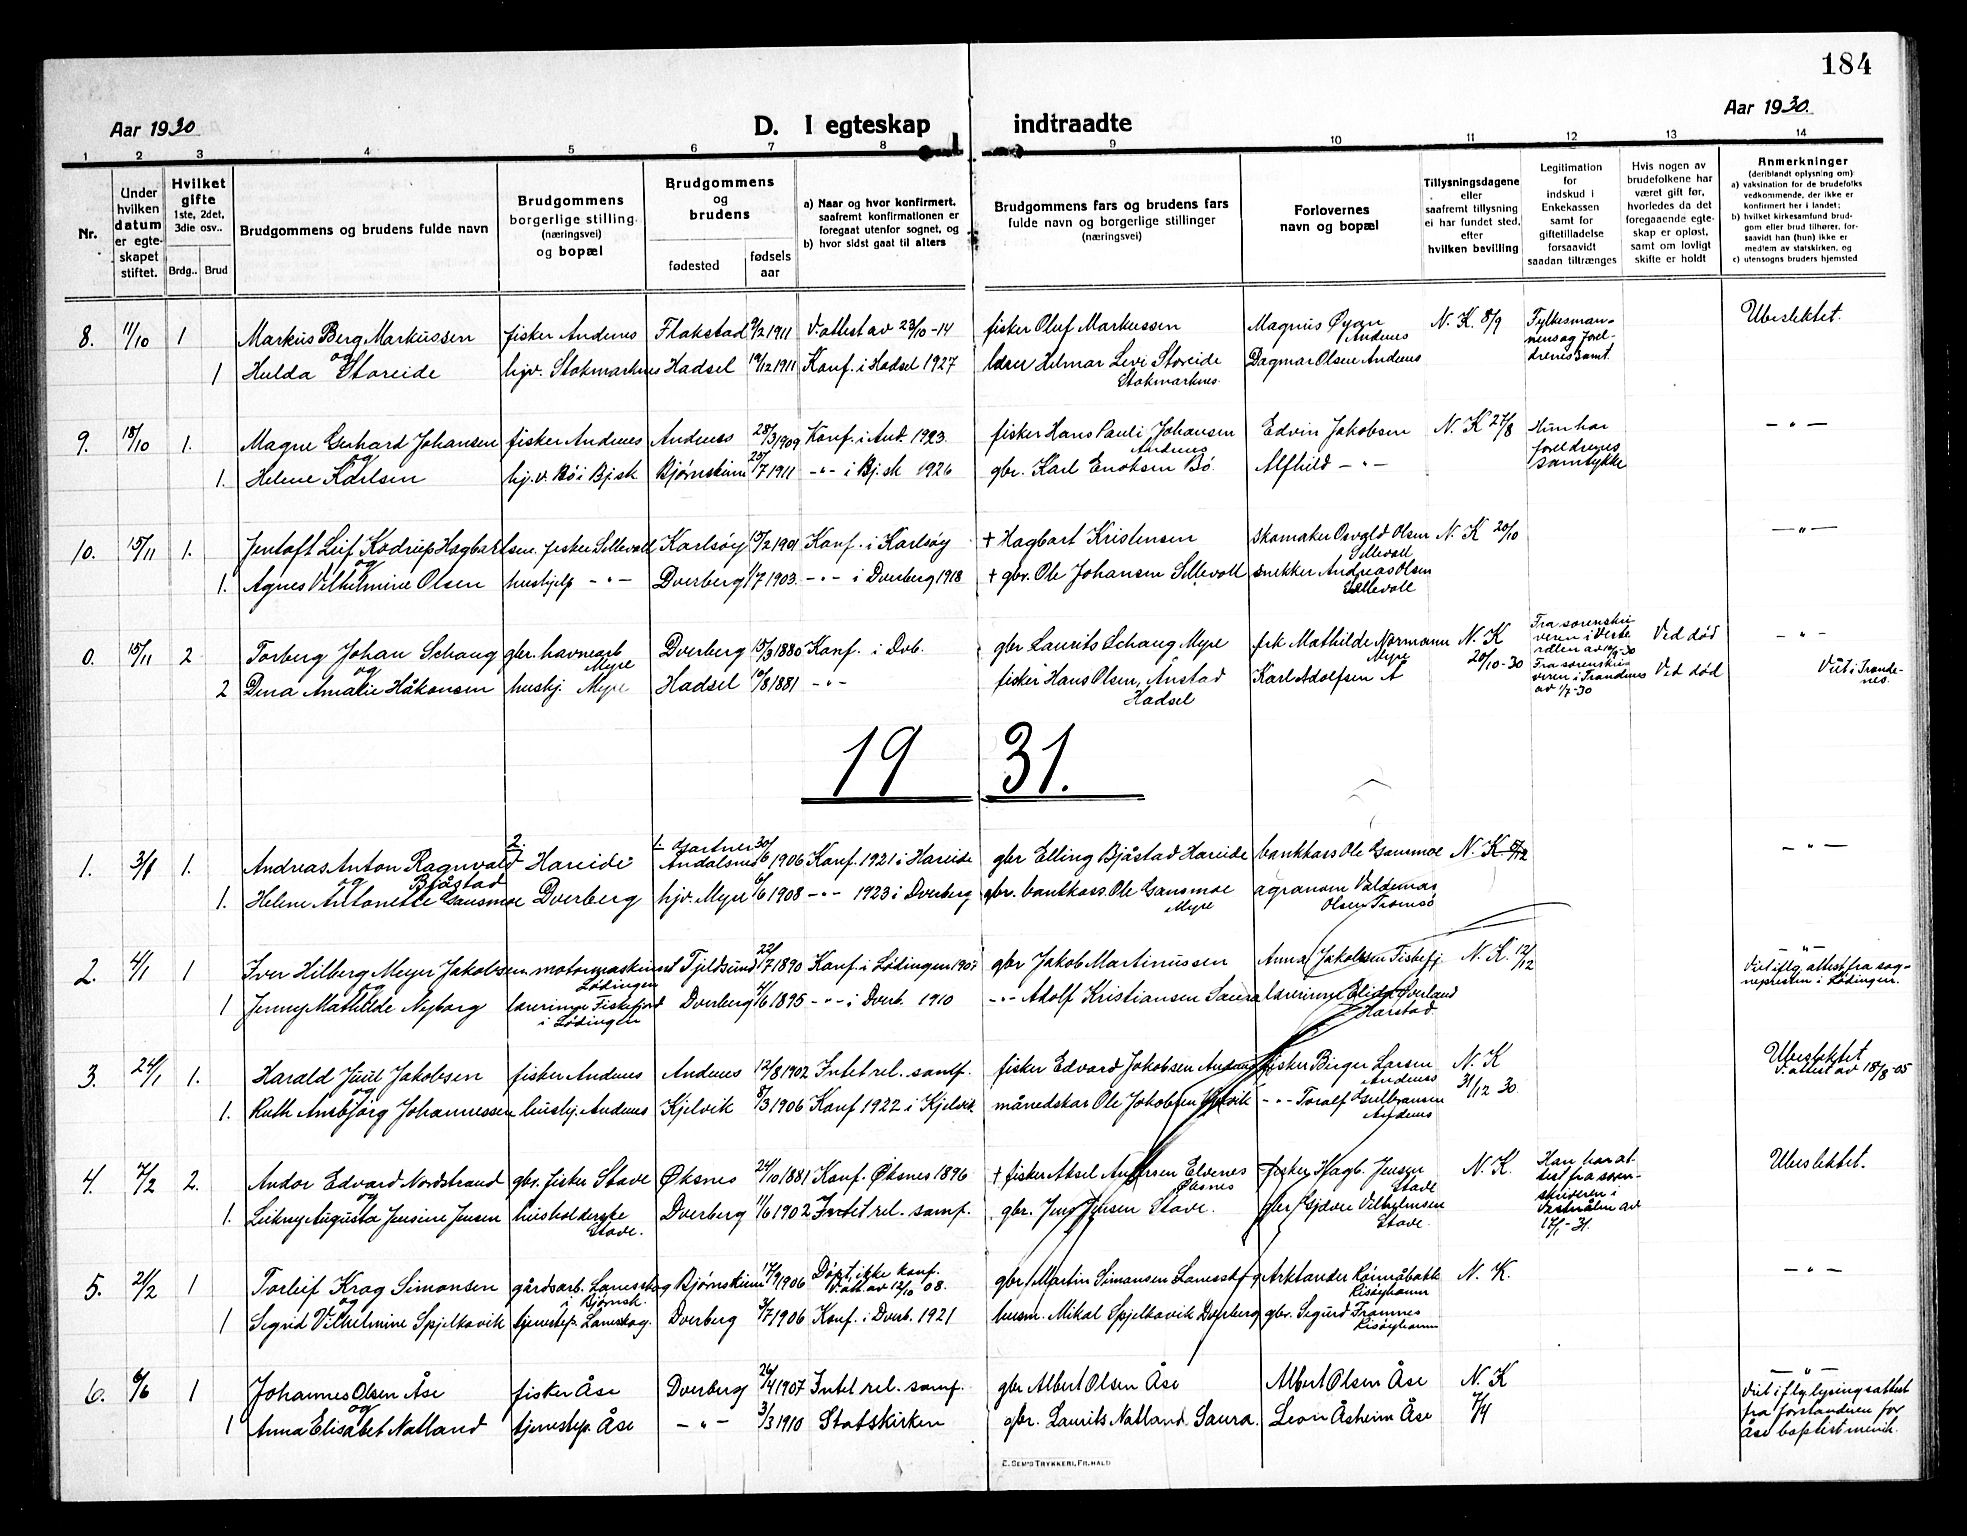 184
Aar 1930
D. I egteskap indtraadte
Aar 1930.
1 2 3 4 5 6 7 8 9 10 11 12 13 14
Nr.
Under hvilken datum er egteskapet stiftet.
Hvilket gifte 1ste, 2det, 3die osv..
Brdg.. Brud
Brudgommens og brudens fulde navn
Brudgommens borgerlige stilling (næringsvei) og bopæl
Brudgommens og brudens
fødested
fødsels aar
a) Naar og hvor konfirmert, saafremt konfirmationen er foregaat utenfor sognet, og
b) hvor sidst gaat til alters
Brudgommens fars og brudens fars fulde navn og borgerlige stillinger (næringsvei)
Forlovernes navn og bopæl
Tillysningsdagene eller saafremt tillysning ei har fundet sted, efter hvilken bevilling
Legitimation for indskud i Enkekassen samt for giftetilladelse forsaavidt saadan tiltrænges
Hvis nogen av brudefolkene har været gift før, hvorledes da det foregaaende egteskap er opløst, samt om lovligt skifte er holdt
Anmerkninger (deriblandt oplysning om)
a) vaksination for de brudefolks vedkommende, der ikke er konfirmert her i landet;
b) hvilket kirkesamfund brudgom eller brud tilhører, forsaavidt han (hun) ikke er medlem av statskirken, og
c) utensogns bruders hjemsted
8. 11/10 1 Markus Berg Markussen fisker Andenes Flakstad 9/2 1911 V.attest av 23/10-14 fisker Oluf Markussen Magnus Øyan Andenes N. K. 8/9 Fylkesmannens og foreldrenes samt. Ubeslektet.
og
1 Hulda Storeide hjv. Stokmarknes Hadsel 19/12 1911 Konf. i Hadsel 1927 lærer Helmar Levi Storeide Stokmarknes. Dagmar Olsen Andenes
9. 18/10 1. Magne Gerhard Johansen fisker Andenes Andenes 28/3 1909 Konf. i And. 1923. fisker Hans Pauli Johansen Andenes Edvin Jakobsen N. K 27/8 Hun har foreldrenes samtykke —"—
og
1. Helene Karlsen hj. v. Bø i Bj.sk Bjørnskinn 25/7 1911 -"- i Bj.sk 1926 gbr. Karl Enoksen Bø. Alfhild —"—
10. 15/11 1. Jentoft Leif Kodrup Hagbartsen. fisker Sellevoll Karlsøy 15/2 1901 Konf. i Karlsøy + Hagbart Kristensen skomaker Osvald Olsen Sellevoll N. K 20/10 —"—
og
1. Agnes Vilhelmine Olsen hushjelp —"— Dverberg 1/7 1903. -"- i Dverberg 1918 + gbr. Ole Johansen Sellevoll snekker Andreas Olsen Sellevoll
0. 15/11 2 Torberg Johan Schaug gbr. havnearb. Myre Dverberg 15/3 1880 Konf. i Dvb. gbr Laurits Schaug Myre frk Mathilde Normann Myre N. K 20/10-30 Fra sorenskriveren i Vesterålen av 19/9-30 Ved død —"—
og
2 Dena Amalie Håkonsen hushj. Myre Hadsel 10/8 1881 -"- fisker Hans Olsen, Ånstad Hadsel Karl Adolfsen A Fra sorenskriveren i Trondenes av 1/7-30 Ved død Viet i Trondenes.
1931.
1. 3/1 1. Andreas Anton Ragnvald Bjåstad 2. Hareide 1. Gartner Åndalsnes 30/6 1906 Konf. 1921 i Hareide gbr Elling Bjåstad Hareide bankkass Ole Gansmoe N. K. /12 —"—
og
1. Helene Antonette Gansmoe Dverberg hjv. Myre 6/6 1908 -"- 1923 i Dverberg gbr. bankkass. Ole Gansmoe Myre agronom Valdemar Olsen Tromsø
2. 4/1 1 Iver Hilberg Meyer Jakobsen motormaskinist Lødingen Tjeldsund 22/7 1890 Konf. i Lødingen 1907 gbr Jakob Martinussen Anna Jakobsen Fiskefj. N. K. 12/12 —"— Viet iflg. attest fra sognepresten i Lødingen.
og
1 Jenny Mathilde Nyborg lærerinne Fiskefjord i Lødingen Dverberg 4/6 1895 -"- i Dverb. 1910 -"- Adolf Kristiansen Saura lærerinne Elida Overland Harstad.
3. 24/1 1. Harald Juul Jakobsen fisker Andenes Andenes 12/8 1902 Intet rel. samf. fisker Edvard Jakobsen Andenes fisker Birger Larsen Andenes N. K 31/12 30. Ubeslektet V. attest av 18/8-05
og
1. Ruth Ansbjørg Johannessen hushj. Andenes Kjelvik 8/3 1906 Konf 1922 i Kjelvik månedskar Ole Jakobsen Kjelvik -"- Toralf Gulbransen Andenes
4. 7/2 2. Andor Edvard Nordstrand gbr. fisker Stave Øksnes 24/10 1881 Konf. Øksnes 1896 + fisker Aksel Andersen Elvenes Øksnes fisker Hagb. Jensen Stave N. K. Han har attest fra sorenskriveren i Vesterålen av 17/1-31. Ubeslektet.
og
1. Leikny Augusta Jensine Jensen husholderske Stave. Dverberg 11/6 1902 Intet rel. samf. gbr. Jens Jensen Stave. gbr Gjdver Vilhelmsen Stave.
5. 21/2 1 Torleif Krag Simonsen gårdsarb. Lanesskog i Bjørnsk. Bjørnskinn 17/9 1906 Døpt, ikke konf. V.att. av 12/10 08. gbr. Martin Simonsen Lanesskog Arktander Rønnåbakk Risøyhamn N. K. —"—
og
1 Sigrid Vilhelmine Spjelkavik tjenestep. Laneskog. Dverberg 3/7 1906 Konf. i Dverb. 1921 husm. Mikal Spjelkavik Dverberg gbr. Sigurd Framnes Risøyhamn
6. 6/6 1 Johannes Olsen Åse fisker Åse Dverberg 26/4 1907 Intet rel. samf. gbr Albert Olsen Åse Albert Olsen Åse N. K 7/4 —"— Viet iflg lysingsattest fra forstanderen for Åse baptistmenih.
og
1 Anna Elisabet Natland tjenestep. Åse —"— 3/3 1910 Statskirken gbr. Laurits Natland. Saura. Leon Åsheim Åse
E. SEM'S TRYKKERI, FR.HALD